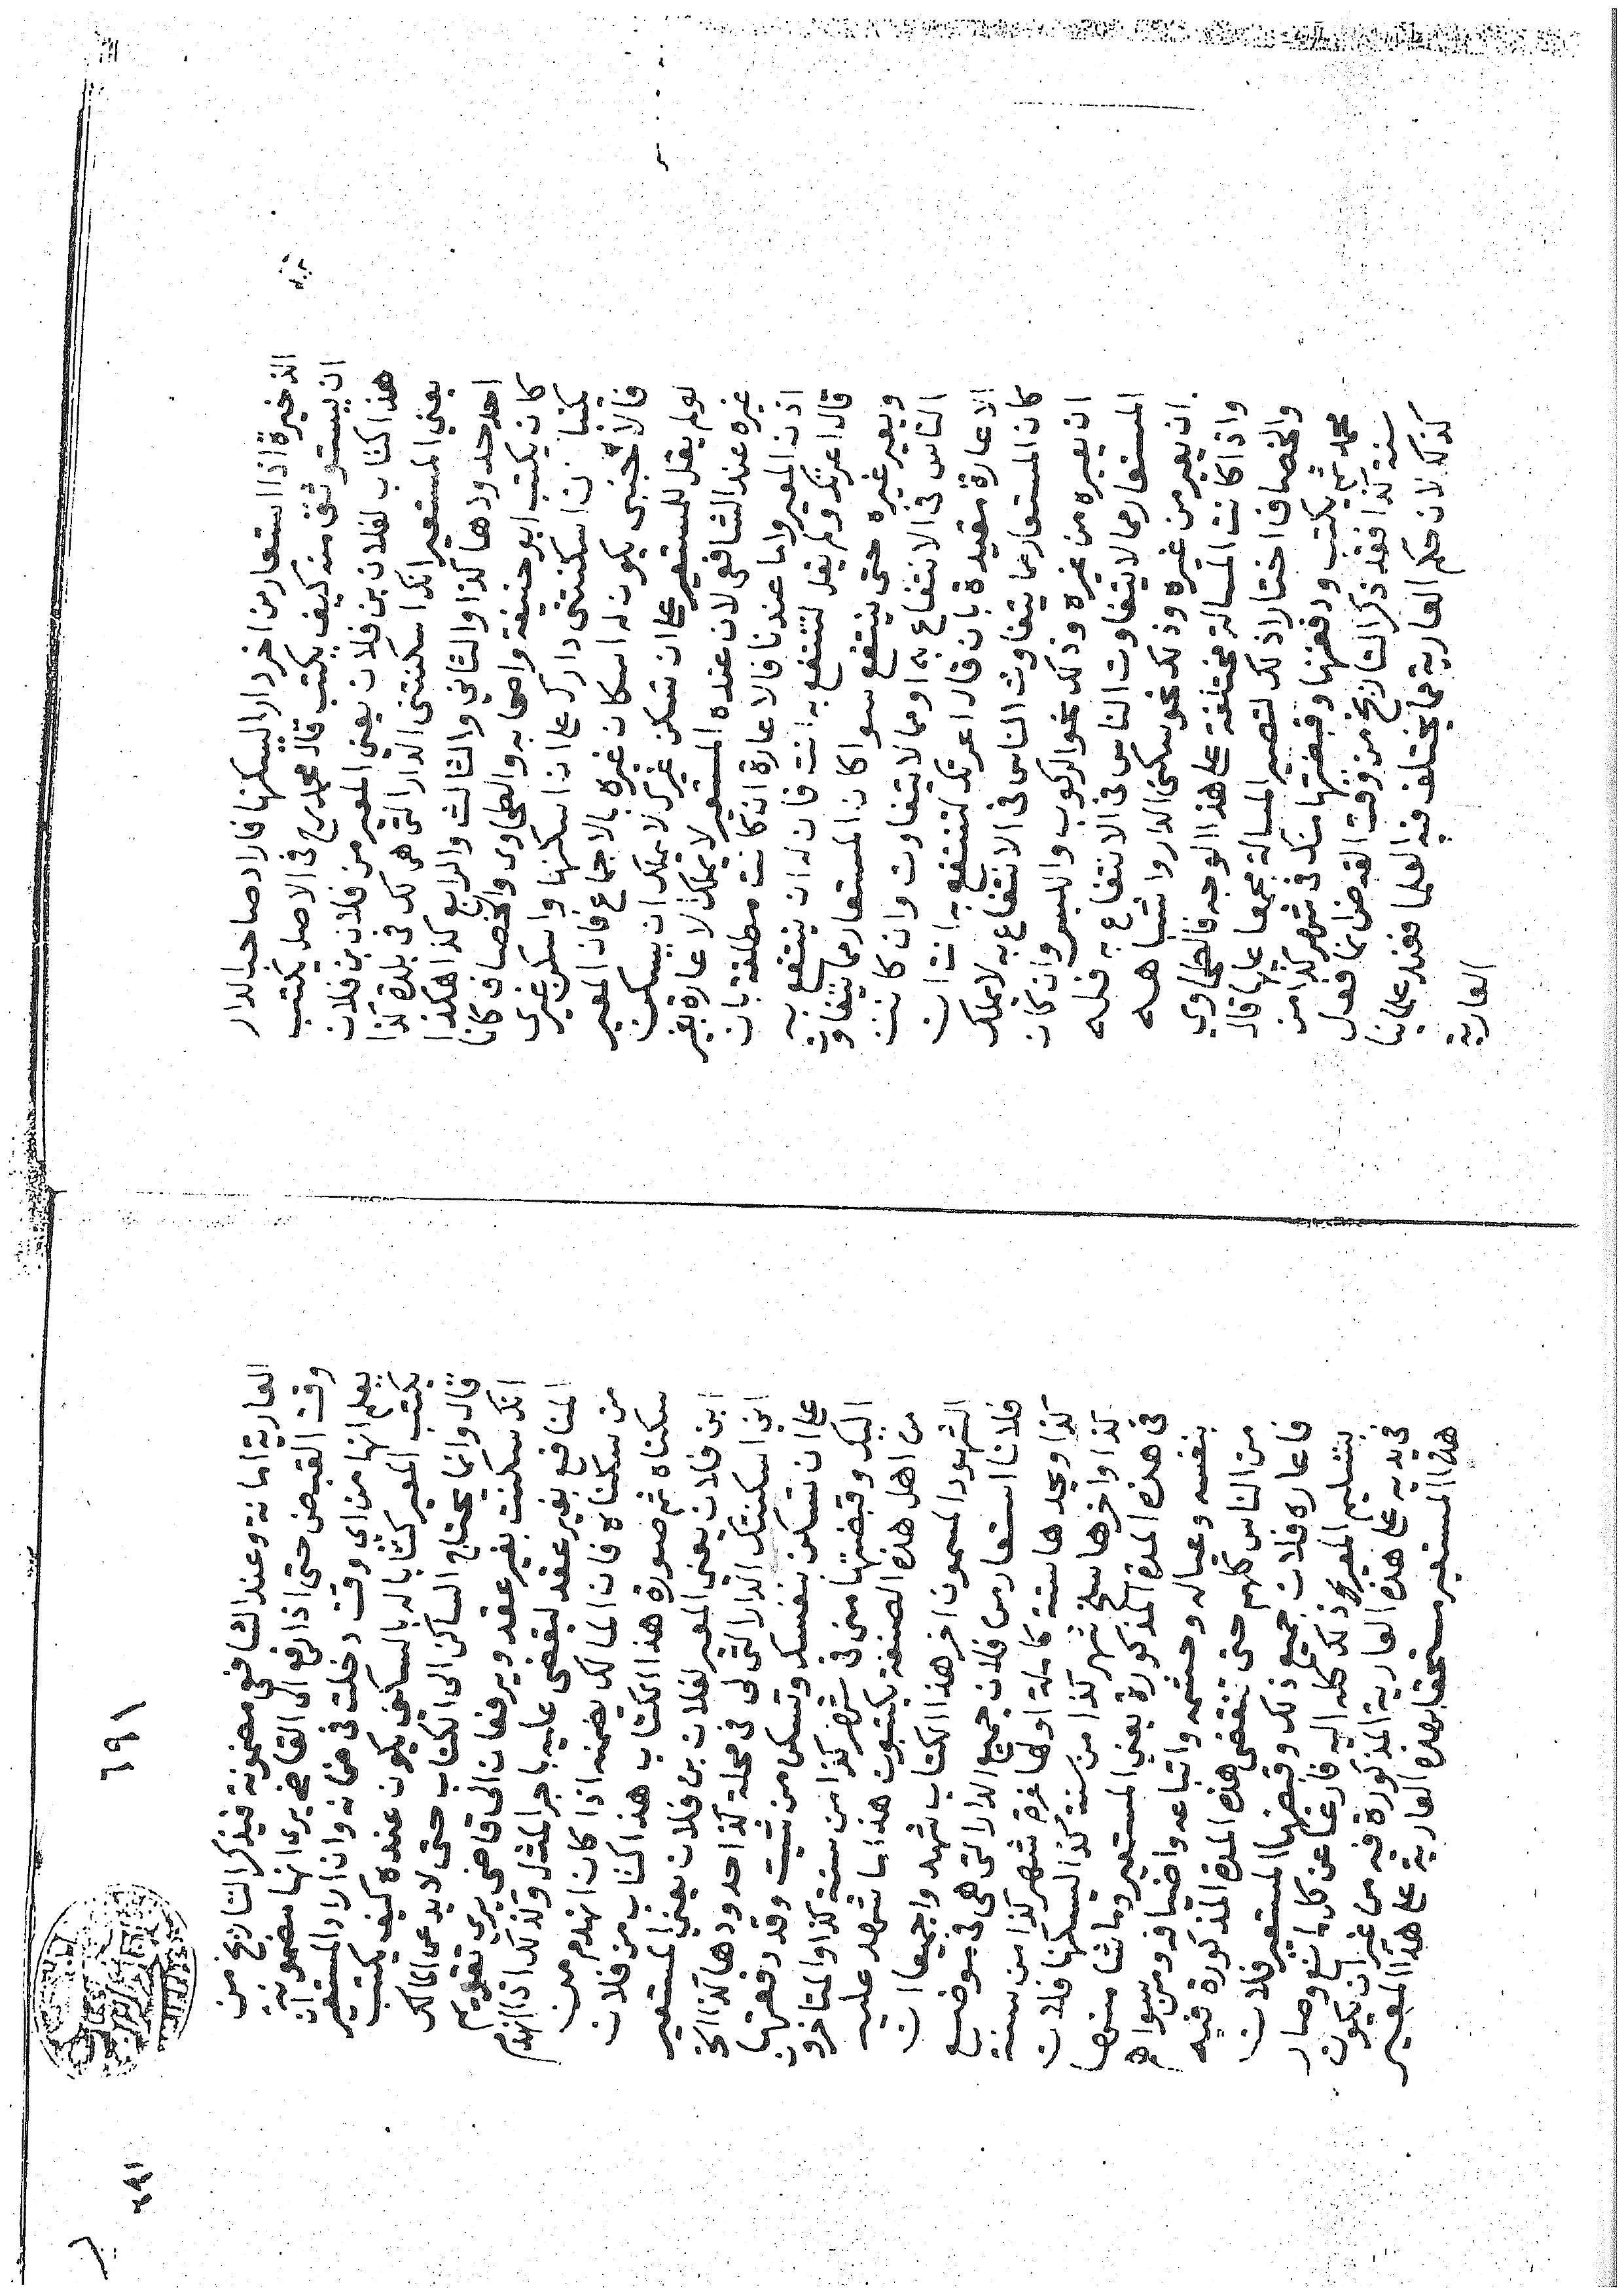 الذخيرة اذا استعار من اخر دارا ليسكنها فاراد صاحب الدار
ان يستوثق منه كيف يكتب قال محمد رح فى الاصل يكتب
هذا كتاب لفلان بن فلان يعني المعير من فلان بن فلان
يعني المستعير انك اسكنتنى الدار التى هى لك فى بلدة كذا
احد حدودها كذا والثاني والثالث والرابع كذا هكذا
كان يكتب ابو حنيفة واصحابه والطحاوى والخصاف كانا
يكتبا ن اسكنتنى دارك على ان اسكنها واسكن غيرى
فالاجنبى يكون له اسكان غيره بالاجماع فان المعير
لو لم يقل للمستعير على ان تسكن غيرك لا يملك ان يسكن
غيره عند الشافعى لان عنده المستعير لا يملك الاعارة بغير
اذن المعير واما عندنا فالاعارة ان كانت مطلقة بان
قال اعرتك ولم يقل لتنتفع به انت فان له ان ينتفع به
ويعير غيره حتى ينتفع سوا كان المستعار مما يتفاوت
الناس فى الانتفاع به او مما لا يتفاوت وان كانت
الاعارة مقيدة بان قال اعرتك لتنتفع به انت ان
كان المستعار مما يتفاوت الناس فى الانتفاع به لا يملك
ان يعيره من غيره وذلك نحو الركوب واللبس وان كان
المستعار مما لا يتفاوت الناس فى الانتفاع به فله
ان يعير من غيره وذلك نحو سكنى الدار واشباهه
واذا كانت المسالة مختلفة على هذا الوجه فالطحاوي
والخصاف اختارا ذلك لتصير المسالة مجمعا عليها قال
محمد ثم يكتب ودفعتها وقبضتها منك فى شهر كذا من
سنة كذا فقد ذكر التاريخ من وقت القبض انما فعل
كذلك لان حكم العارية مما يختلف فيه العلما فعند علمائنا
العارية
١٩٦
العارية امانة وعند الشافعى مضمونة فيذكر التاريخ من
وقت القبض حتى اذا رفع الى القاضى يرى انها مضمونة
يعلم انها من اى وقت دخلت فى ضمانه وان اراد المستعير
يكتب المعير كتابا له بالسكنى يكون عنده كيف يكتب
قال وانما يحتاج الساكن الى الكتاب حتى لا يدعى المالك
انك سكنت بغير عقد ويرفعان الى قاضى يرى تقويم
المنافع بغير عقد ليقضى عليه باجر المثل وكذلك اذا انهدم
من سكناه فان المالك يضمنه اذا كان انهدم من
سكناه ثم صورة هذا الكتاب هذا كتاب من فلان
ابن فلان يعنى المعير لفلان بن فلان يعني المستعير
انى اسكنتك الدار التى لى فى محلة كذا احد حدودها كذا الخ
على ان تسكن بنفسك وتسكن من شيت وقد دفعتها
اليك وقبضتها منى فى شهر كذا من سنة كذا والمتاخرون
من اهل هذه الصنعة يكتبون هذا ما شهد عليه
الشهود المسمون اخر هذا الكتاب شهدوا جميعا ان
فلانا استعار من فلان جميع الدار التى هى فى موضع
كذا ويحدها سنة كاملة اولها غرة شهر كذا من سنة
كذا واخرها سلخ شهر كذا من سنة كذا ليسكنها فلان
فى هذه المدة المذكورة يعني المستعير وما شا منها
بنفسه وعياله وحشمه واتباعه واضيافه ومن سواهم
من الناس كلهم حتى تنقضى هذه المدة المذكورة فيه
فاعاره فلان جميع ذلك وقبضها المستعير فلان
بتسليم المعير ذلك كله اليه فارغا عن كل مانع وصار
في يديه على هذه العارية المذكورة فيه من غير ان يكون
هذا المستعير مستحقا بهذه العارية على هذا المعير
١٩٦